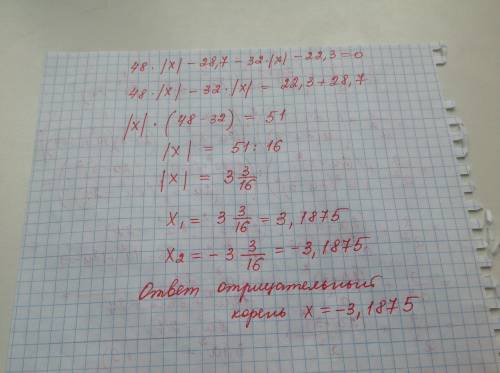 48 · |x| - 28,7 - 32 · |x| - 22,3 = 0
48 · |x| - 32 · |x| = 22,3 + 28,7
|x| · (48 - 32) = 51
|x| = 51 : 16
|x| = 3 3/16
x₁ = 3 3/16 = 3,1875
x₂ = - 3 3/16 = -3,1875.
Ответ отрицательный
корень x = -3,1875